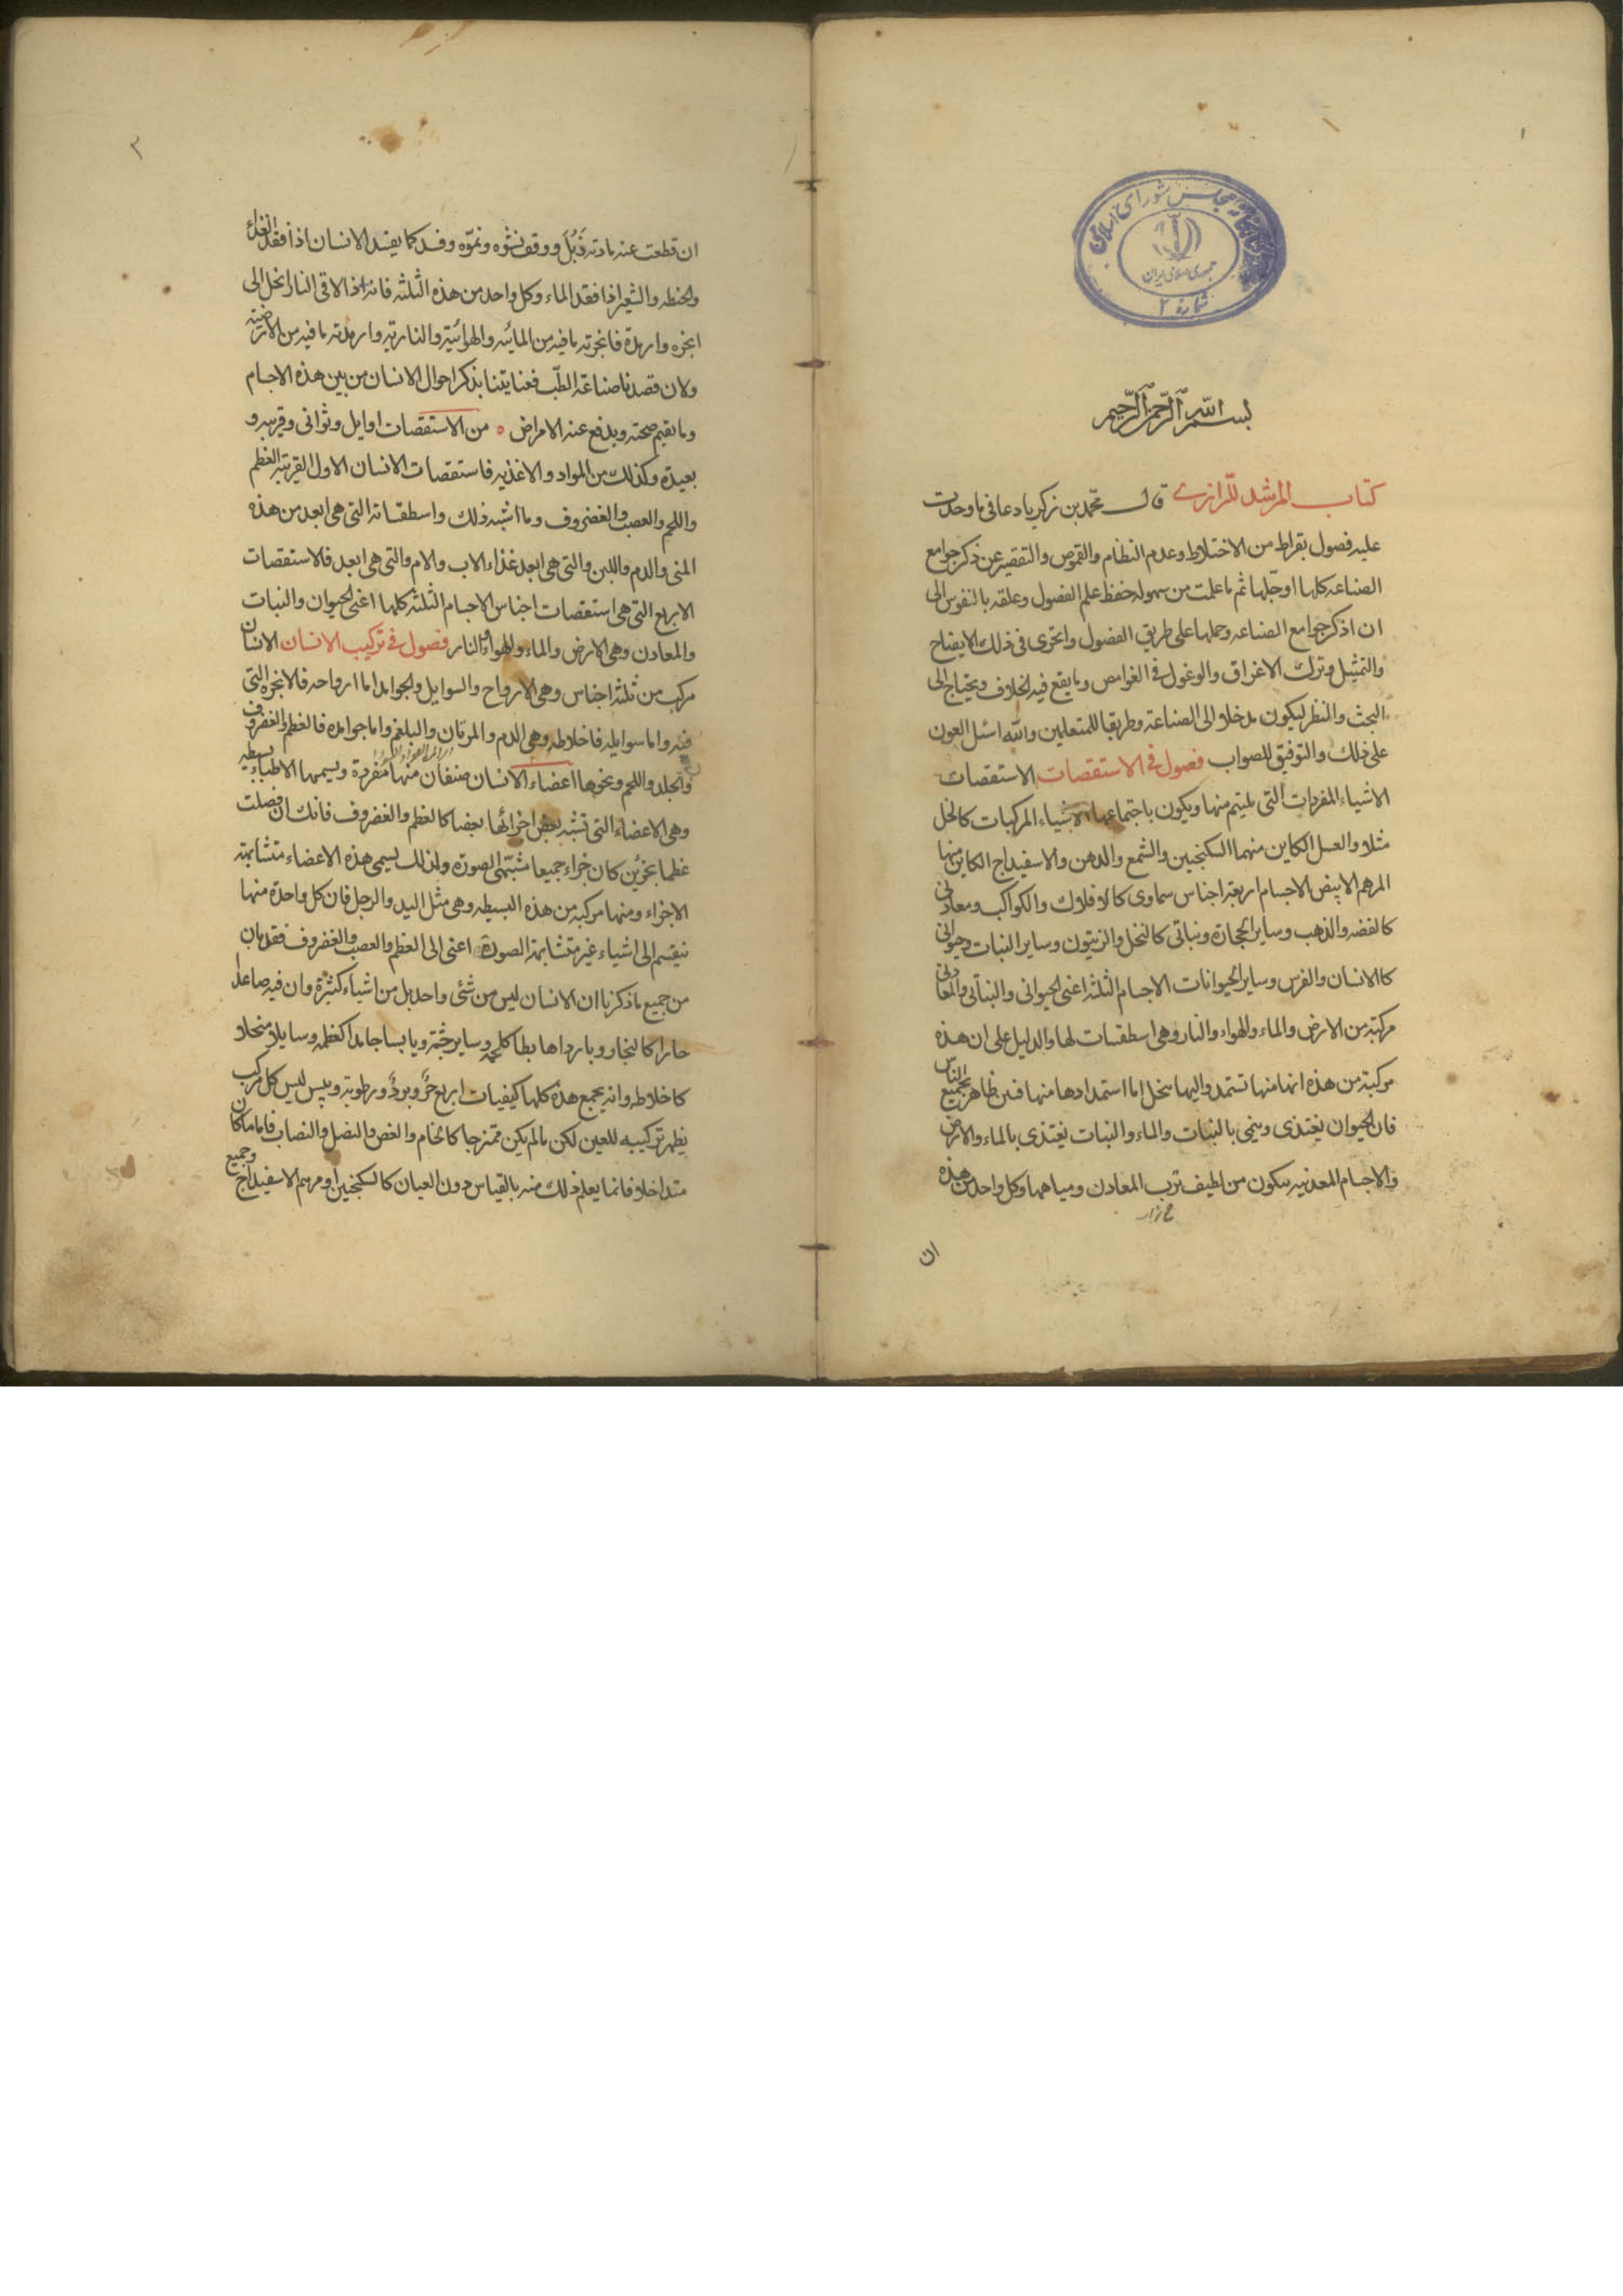 ١
کتابخانه مجلس شورای اسلامی
جمهوری اسلامی ایران
شماره ٢
بسم الله الرحمن الرحيم
كتاب المرشد للرازى قال محمد بن زكريا دعانى ما وجدت
عليه فصول بقراط من الاختلاط وعدم النظام والغموض والتقصير عن ذكر جوامع
الصناعه كلها اوجلها ثم ما علمت من سهوله حفظ علم الفصول وعلقه بالنفوس الى
ان اذكر جوامع الصناعه وجملها على طريق الفصول واتحرى فى ذلك الايضاح
والتمثيل وترك الاغراق والوغول فى الغوامص وما يقع فيه الخلاف ويحتاج الى
البحث والنظر ليكون مدخلا الى الصناعة وطريقا للمتعلمين والله اسئل العون
على ذلك والتوفيق للصواب فصول فى الاستقصات الاستقصات
الاشياء المفردات التى يلتئم منها ويكون باجتماعها الاشياء المركبات كالخل
مثلا والعسل الكاين منهما السكنجبين والشمع والدهن والاسفيداج الكاين منها
المرهم الابيض الاجسام اربعة اجناس سماوى كالافلاك والكواكب ومعادنى
كالفضه والذهب وساير الحجارة ونباتى كالنخل والزيتون وساير النبات وحيوانى
كالانسان والفرس وساير الحيوانات الاجسام الثلثه اعنى الحيوانى والنباتى والمعادنى
مركبة من الارض والماء والهواء والنار وهى اسطقسات لها والدليل على ان هذه
مركبة من هذه انها منها تستمد واليها ينحل اما استمدادها منها فبين ظاهر لجميع الناس
فان الحيوان يغتذى وينمى بالنبات والماء والنبات يغتذى بالماء والارض
والاجسام المعدنيه يتكون من لطيف ترب المعادن ومياهها وكل واحد من هذه
ان
ان قطعت عنه مادته ذبل ووقف نشوه ونموه وفسد كما يفسد الانسان اذا فقد الغذاء
والحنطه والشعير اذا فقد الماء وكل واحد من هذه الثلثه فانه اذا لاقى النار انحل الى
ابخره وارمدة فابخرته ما فيه من المائيه والهوائيه والناريه وارمدته ما فيه من الارضيته
ولان قصدنا صناعة الطب فعنايتنا بذكر احوال الانسان من بين هذه الاجسام
وما يقيم صحته ويدفع عنه الامراض ٥ من الاستقصات اوايل وثوانى وقريبه و
بعيدة وكذلك من المواد والاغذيه فاستقصات الانسان الاول القريبة العظم
واللحم والعصب والغضروف وما اشبه ذلك واسطقساته التى هى ابعد من هذه
المنى والدم واللبن والتى هى ابعد غذاء الاب والام والتى هى ابعد فالاستقصات
الاربع التى هى استقصات اجناس الاجسام الثلثه كلها اعنى الحيوان والنبات
والمعادن وهى الارض والماء والهواء والنار فصول فى تركيب الانسان الانسان
مركب من ثلثه اجناس وهى الارواح والسوايل والجوامد اما ارواحه فالابخره التى
فيه واما سوايله فاخلاطه وهى الدم والمرتان والبلغم واما جوامده فالعظم والغضروف
والجلد واللحم ونحوها اعضاء الانسان صنفان منها مفردة ويسميها الاطباء بسيطه
وهى الاعضاء التى تشبه بعض اجزائها بعضا كالعظم والغضروف فانك ان فصلت
عظما بجزئين كان جزاء جميعا مشبهى الصورة ولذلك يسمى هذه الاعضاء متشابهة
الاجزاء ومنها مركبة من هذه البسيطه وهى مثل اليد والرجل فان كل واحدة منها
ينقسم الى اشياء غير متشابهة الصورة اعنى الى العظم والعصب والغضروف فقد بان
من جميع ما ذكرنا ان الانسان ليس من شئ واحد بل من اشياء كثيرة وان فيه صاعدا
حارا كالبخار وباردا هابطا كلحمه وساير جثته ويابسا جامدا كعظمه وسايلا منحلا
كاخلاطه وانه يجمع هذه كلها كيفيات اربع حر وبرد ورطوبة ويبس ليس كل مركب
يظهر تركيبه للعين لكن ما لم يكن ممتزجا كالخاتم والفص والنصل والنصاب فاما ما كان
متداخلا فانما يعلم ذلك منه بالقياس دون العيان كالسكنجبين او مرهم الاسفيداج وجميع